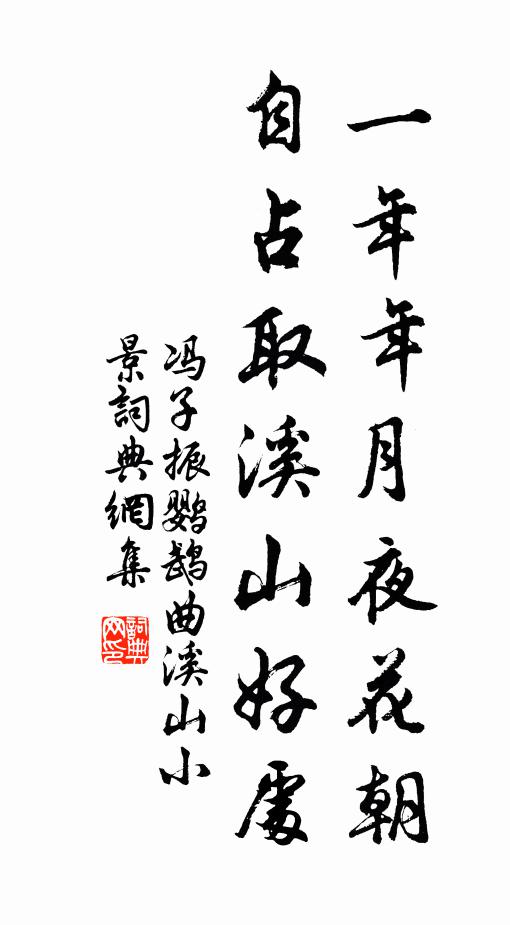 一年年月夜花朝
自占取溪山好處
冯子振鹦鹉曲溪山小
景詞典網集
詞典
网印